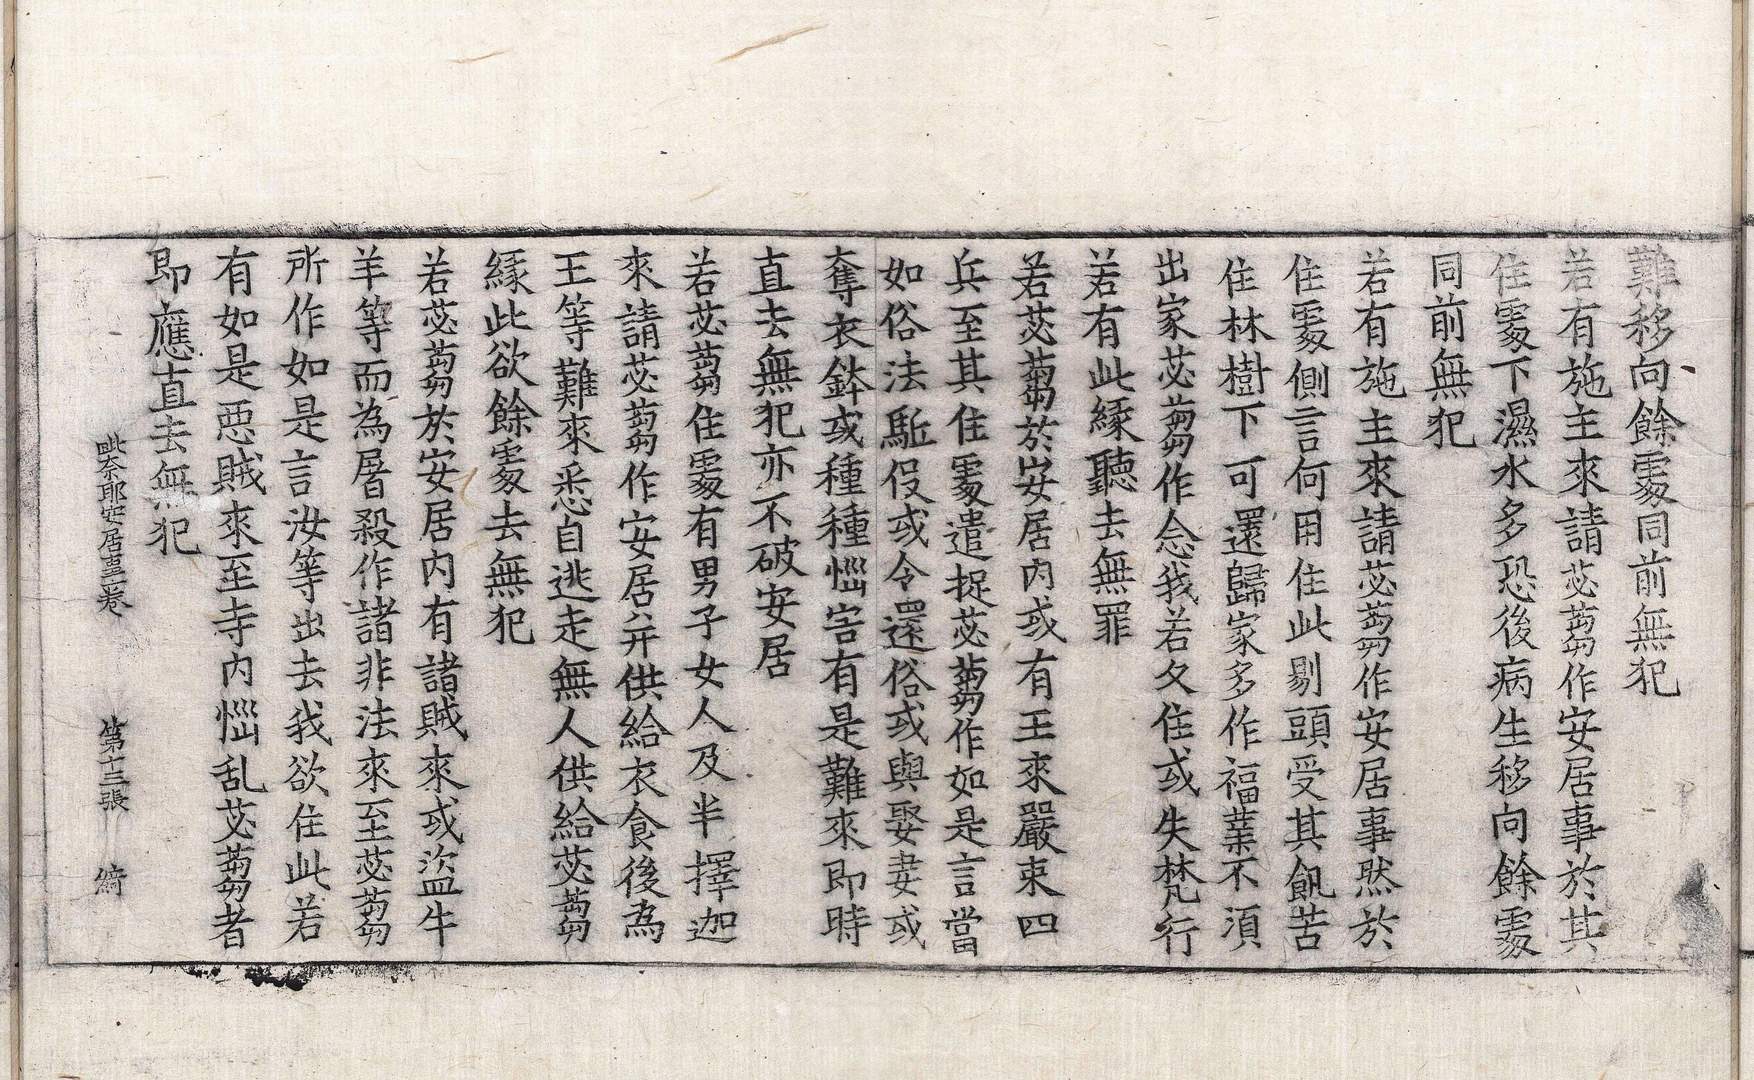 難移向餘處同前無犯
若有施主來請苾芻作安居事於其
住處下濕水多恐後病生移向餘處
同前無犯
若有施主來請苾芻作安居事然於
住處側言何用住此剔頭受其飢苦
住林樹下可還歸家多作福業不須
出家苾芻作念我若久住或失梵行
若有此緣聽去無罪
若苾芻於安居內或有王來嚴束四
兵至其住處遣捉苾芻作如是言當
如俗法駈役或令還俗或與娶妻或
奪衣鉢或種種惱害有是難來即時
直去無犯亦不破安居
若苾芻住處有男子女人及半擇迦
來請苾芻作安居并供給衣食後為
王等難來悉自逃走無人供給苾芻
緣此欲餘處去無犯
若苾芻於安居內有諸賊來或盜牛
羊等而為屠殺作諸非法來至苾芻
所作如是言汝等出去我欲住此若
有如是惡賊來至寺內惱乱苾芻者
即應直去無犯
毗奈耶安居事一卷 第十三張